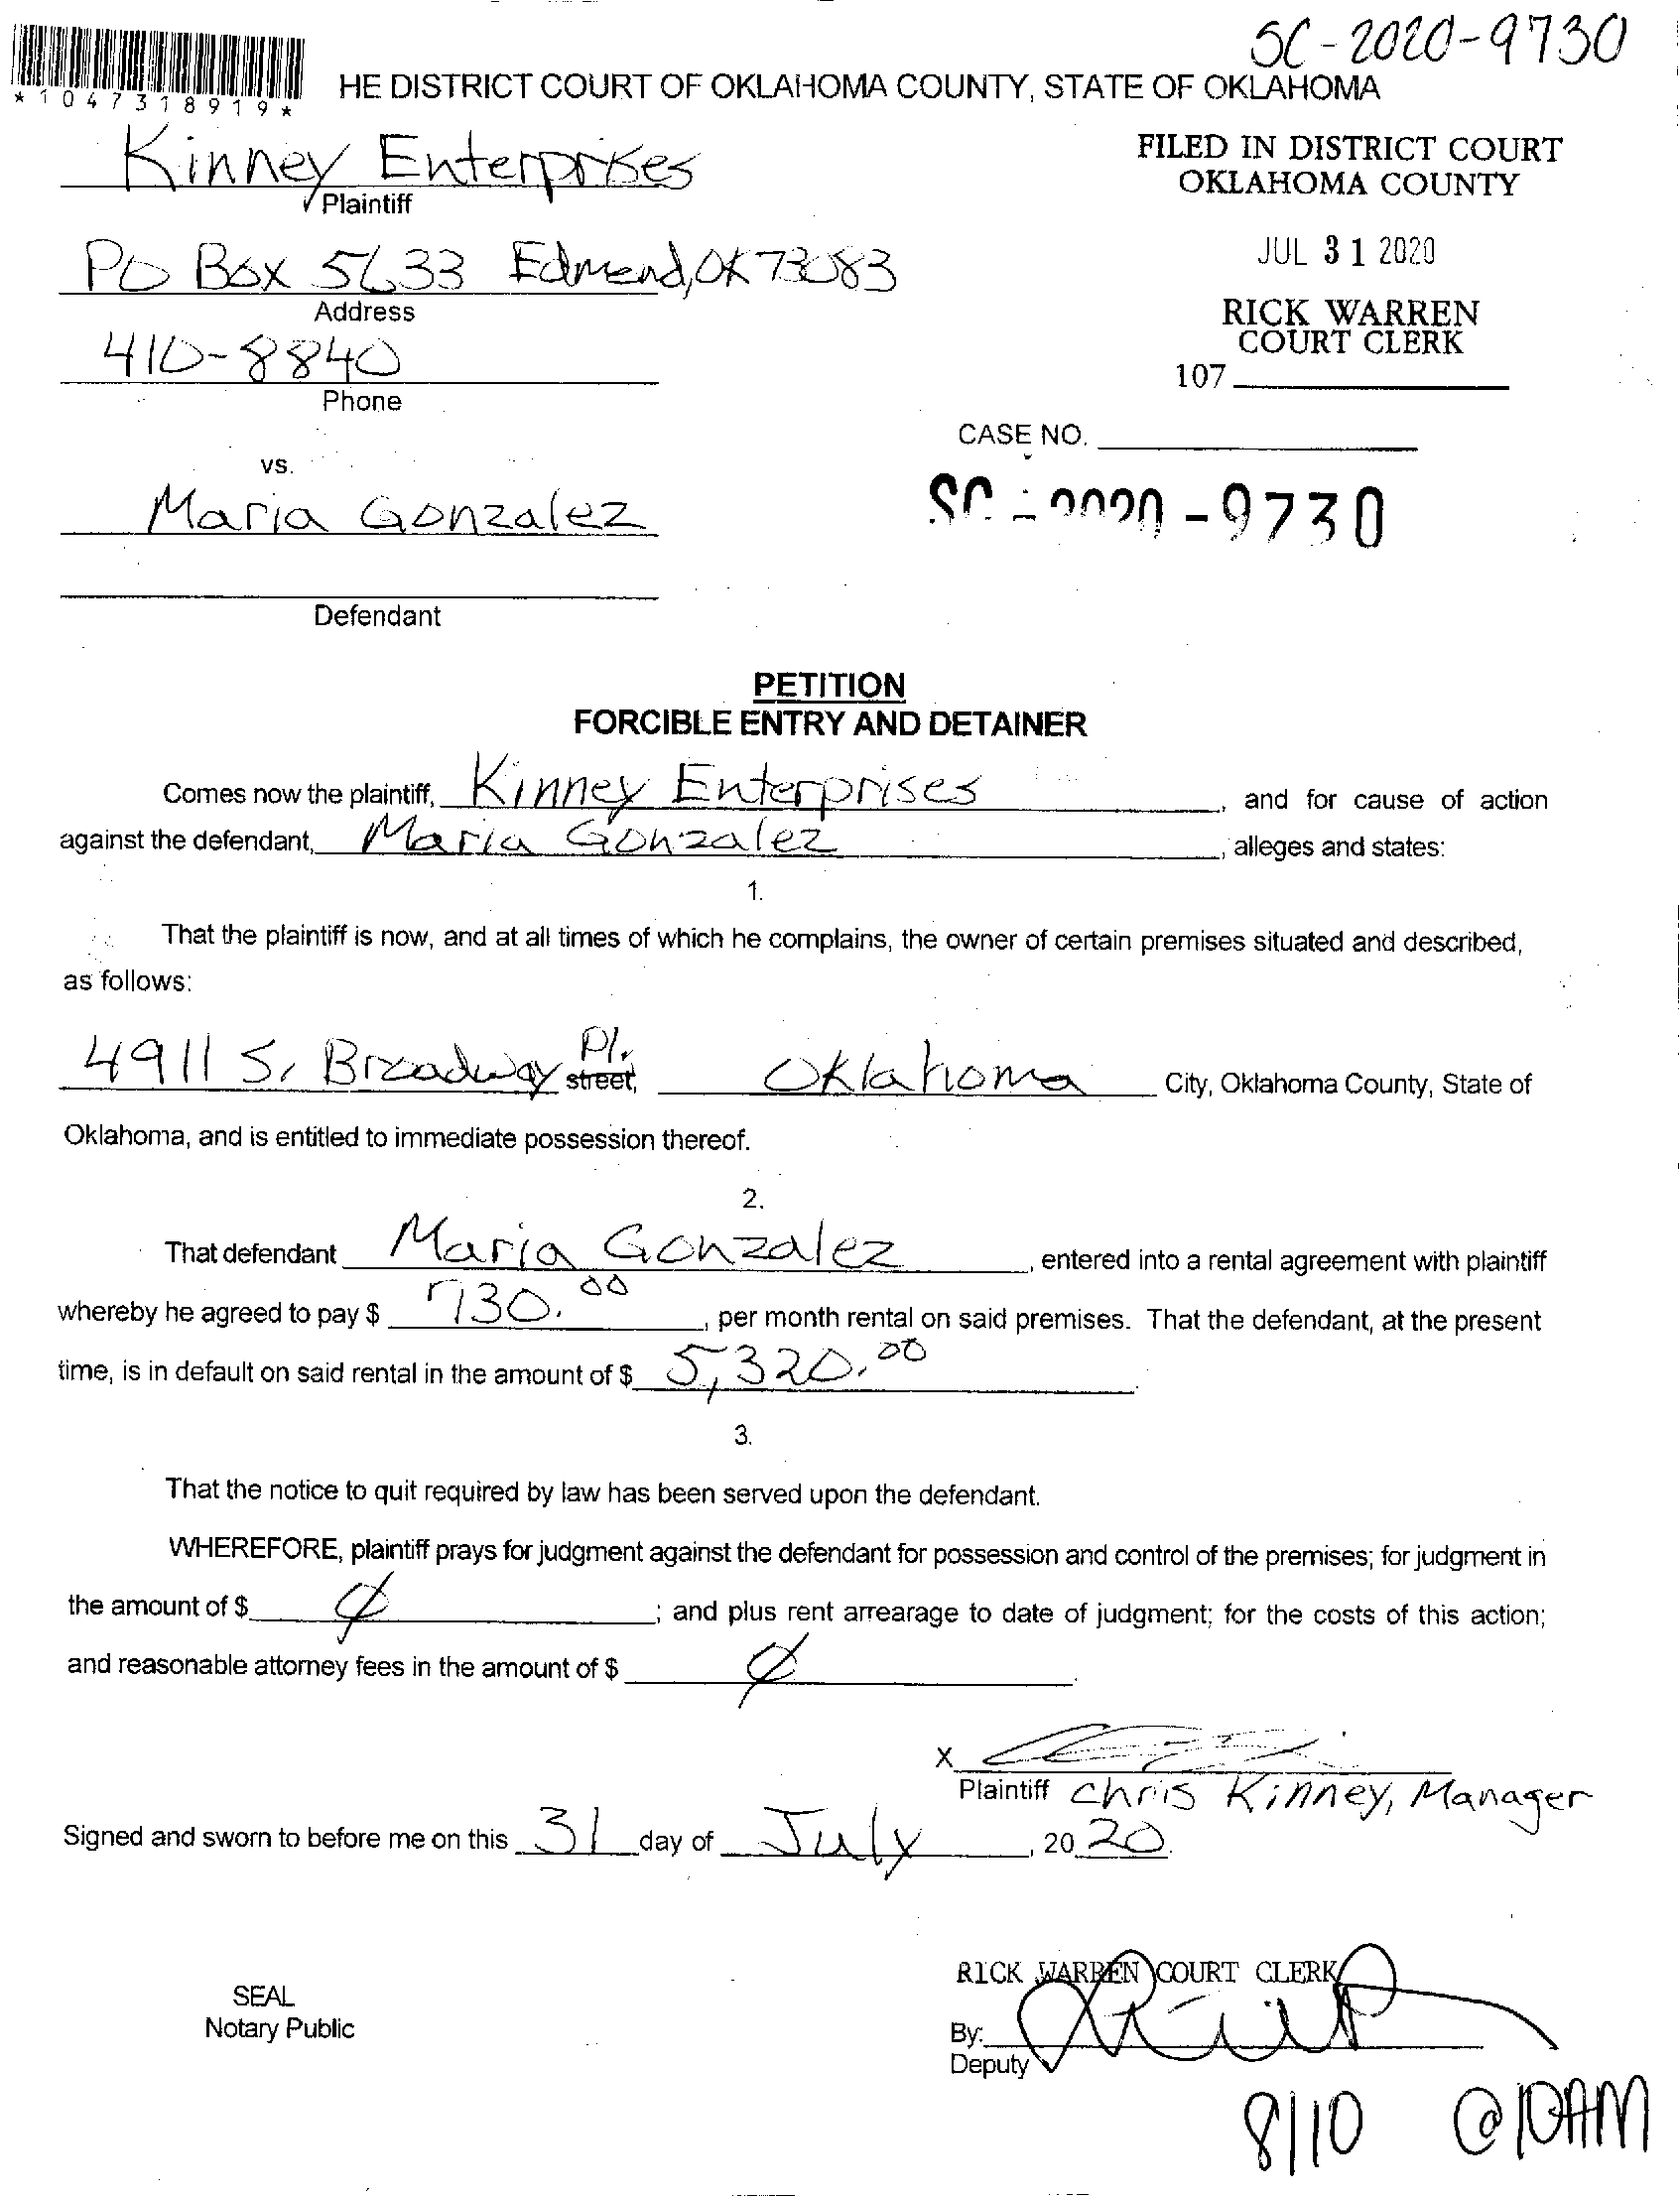 SC-2020-9730
*1047318919*
HE DISTRICT COURT OF OKLAHOMA COUNTY, STATE OF OKLAHOMA
Kinney Enterprises
Plaintiff
FILED IN DISTRICT COURT
OKLAHOMA COUNTY
PO Box 5633 Edmond, OK 73083
Address
JUL 31 2020
RICK WARREN
COURT CLERK
410-8840
Phone
107
CASE NO.
vs.
Maria Gonzalez
SC - 2020 - 9730
Defendant
PETITION
FORCIBLE ENTRY AND DETAINER
Comes now the plaintiff, Kinney Enterprises, and for cause of action
against the defendant, Maria Gonzalez, alleges and states:
1.
That the plaintiff is now, and at all times of which he complains, the owner of certain premises situated and described,
as follows:
4911 S. Broadway Pl. street, Oklahoma City, Oklahoma County, State of
Oklahoma, and is entitled to immediate possession thereof.
2.
That defendant Maria Gonzalez, entered into a rental agreement with plaintiff
whereby he agreed to pay $ 730.00, per month rental on said premises. That the defendant, at the present
time, is in default on said rental in the amount of $ 5,320.00.
3.
That the notice to quit required by law has been served upon the defendant.
WHEREFORE, plaintiff prays for judgment against the defendant for possession and control of the premises; for judgment in
the amount of $ 0; and plus rent arrearage to date of judgment; for the costs of this action;
and reasonable attorney fees in the amount of $ 0.
X
Plaintiff Chris Kinney, Manager
Signed and sworn to before me on this 31 day of July, 2020.
RICK WARREN COURT CLERK
SEAL
Notary Public
By:
Deputy
8/10 @10AM